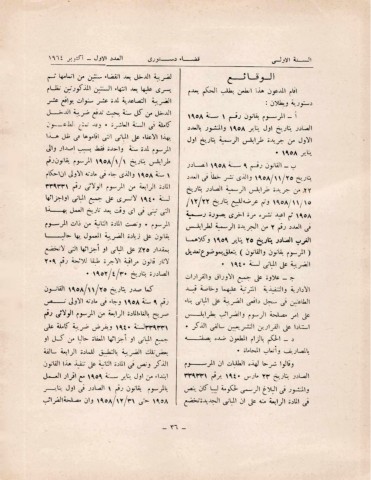 السنة الاولى
قضاء دستورى
العدد الاول - أكتوبر ١٩٦٤
الوقائع
أقام المدعون هذا الطعن بطلب الحكم بعدم
دستورية وبطلان :
أ - المرسوم بقانون رقم ١ سنة ١٩٥٨
الصادر بتاريخ اول يناير ١٩٥٨ والمنشور بالعدد
الاول من جريدة طرابلس الرسمية بتاريخ اول
يناير ١٩٥٨ .
ب - القانون رقم ٩ سنة ١٩٥٨ الصادر
بتاريخ ١٩٥٨/١١/٢٥ والذى نشر خطأ فى العدد
٢٢ من جريدة طرابلس الرسمية الصادر بتاريخ
١٩٥٨/١١/١٥ وتم بتاريخ ١٢/٢٢/
١٩٥٨ ثم أعيد نشره مرة أخرى بصورة رسمية
فى العدد رقم ٢ من الجريدة الرسمية لطرابلس
الغرب الصادر بتاريخ ٢٥ يناير ١٩٥٩ وكلاهما
( المرسوم بقانون والقانون ) يتعلق بموضوع تعديل
الضريبة على المبانى لسنة ١٩٤٠ .
جـ - علاوة على جميع الاوراق والقرارات
الادارية والتنفيذية المترتبة عليهما وخاصة قيد
الطاعنين فى سجل دافعى الضريبة على المبانى بناء
على أمر مصلحة الرسوم والضرائب بطرابلس
استنادا على القرارين التشريعين سالفى الذكر .
د - الحكم بالزام المطعون ضده بصفته
بالمصاريف وأتعاب المحاماة .
وقالوا شرحا لهذه الطلبات ان المرسوم
الصادر بتاريخ ٢٣ مارس ١٩٤٠ برقم ٣٣٩٣٣١
والمنشور فى البلاغ الرسمى لحكومة ليبيا كان ينص
فى المادة الرابعة منه على ان المبانى الجديدة تخضع
لضريبة الدخل بعد انقضاء سنتين من اتمامها ثم
يسرى عليها بعد انتهاء السنتين المذكورتين نظام
الضريبة التصاعدية لمدة عشر سنوات بواقع عشر
الدخل من كل سنة بحيث تدفع ضريبة الدخل
كاملة فى السنة العاشرة . وقد تمتع الطاعنون
بهذا الاعفاء على المبانى التى أقاموها فى ظل هذا
المرسوم لمدة سنة واحدة فقط بسبب اصدار والى
طرابلس بتاريخ ١٩٥٨/١/١ المرسوم بقانون رقم
١ سنة ١٩٥٨ والذى جاء فى مادته الاولى ان احكام
المادة الرابعة من المرسوم الولائى رقم ٣٣٩٣٣١
لسنة ١٩٤٠ لا تسرى على جميع المبانى او اجزائها
التى تبنى فى أى وقت بعد تاريخ العمل بهذا
المرسوم . ونصت المادة الثانية من ذات المرسوم
بقانون على زيادة الضريبة المعمول بها حاليا
بمقدار ٢٥٪ على المبانى أو أجزائها التى لا تخضع
لقانون مراقبة الاجرة طبقا للائحة رقم ٢٠٩
الصادرة بتاريخ ١٩٥٢/٤/٣٠ .
كما صدر بتاريخ ١٩٥٨/١١/٢٥ القانون
رقم ٩ سنة ١٩٥٨ وجاء فى مادته الاولى نص
صريح بالغاء المادة الرابعة من المرسوم الولائى رقم
٣٣٩٣٣١ لسنة ١٩٤٠ وبفرض ضريبة كاملة على
جميع المبانى أو اجزائها المعفاة حاليا من كل او
بعض تلك الضريبة بالتطبيق للمادة الرابعة سالفة
الذكر ونص فى المادة الثانية على تنفيذ هذا القانون
ابتداء من اول يناير سنة ١٩٥٩ مع اقرار العمل
بالمرسوم بقانون رقم ١ الصادر فى اول يناير
١٩٥٨ حتى ١٩٥٨/١٢/٣١ وان مصلحة الضرائب
- ٢٦ -